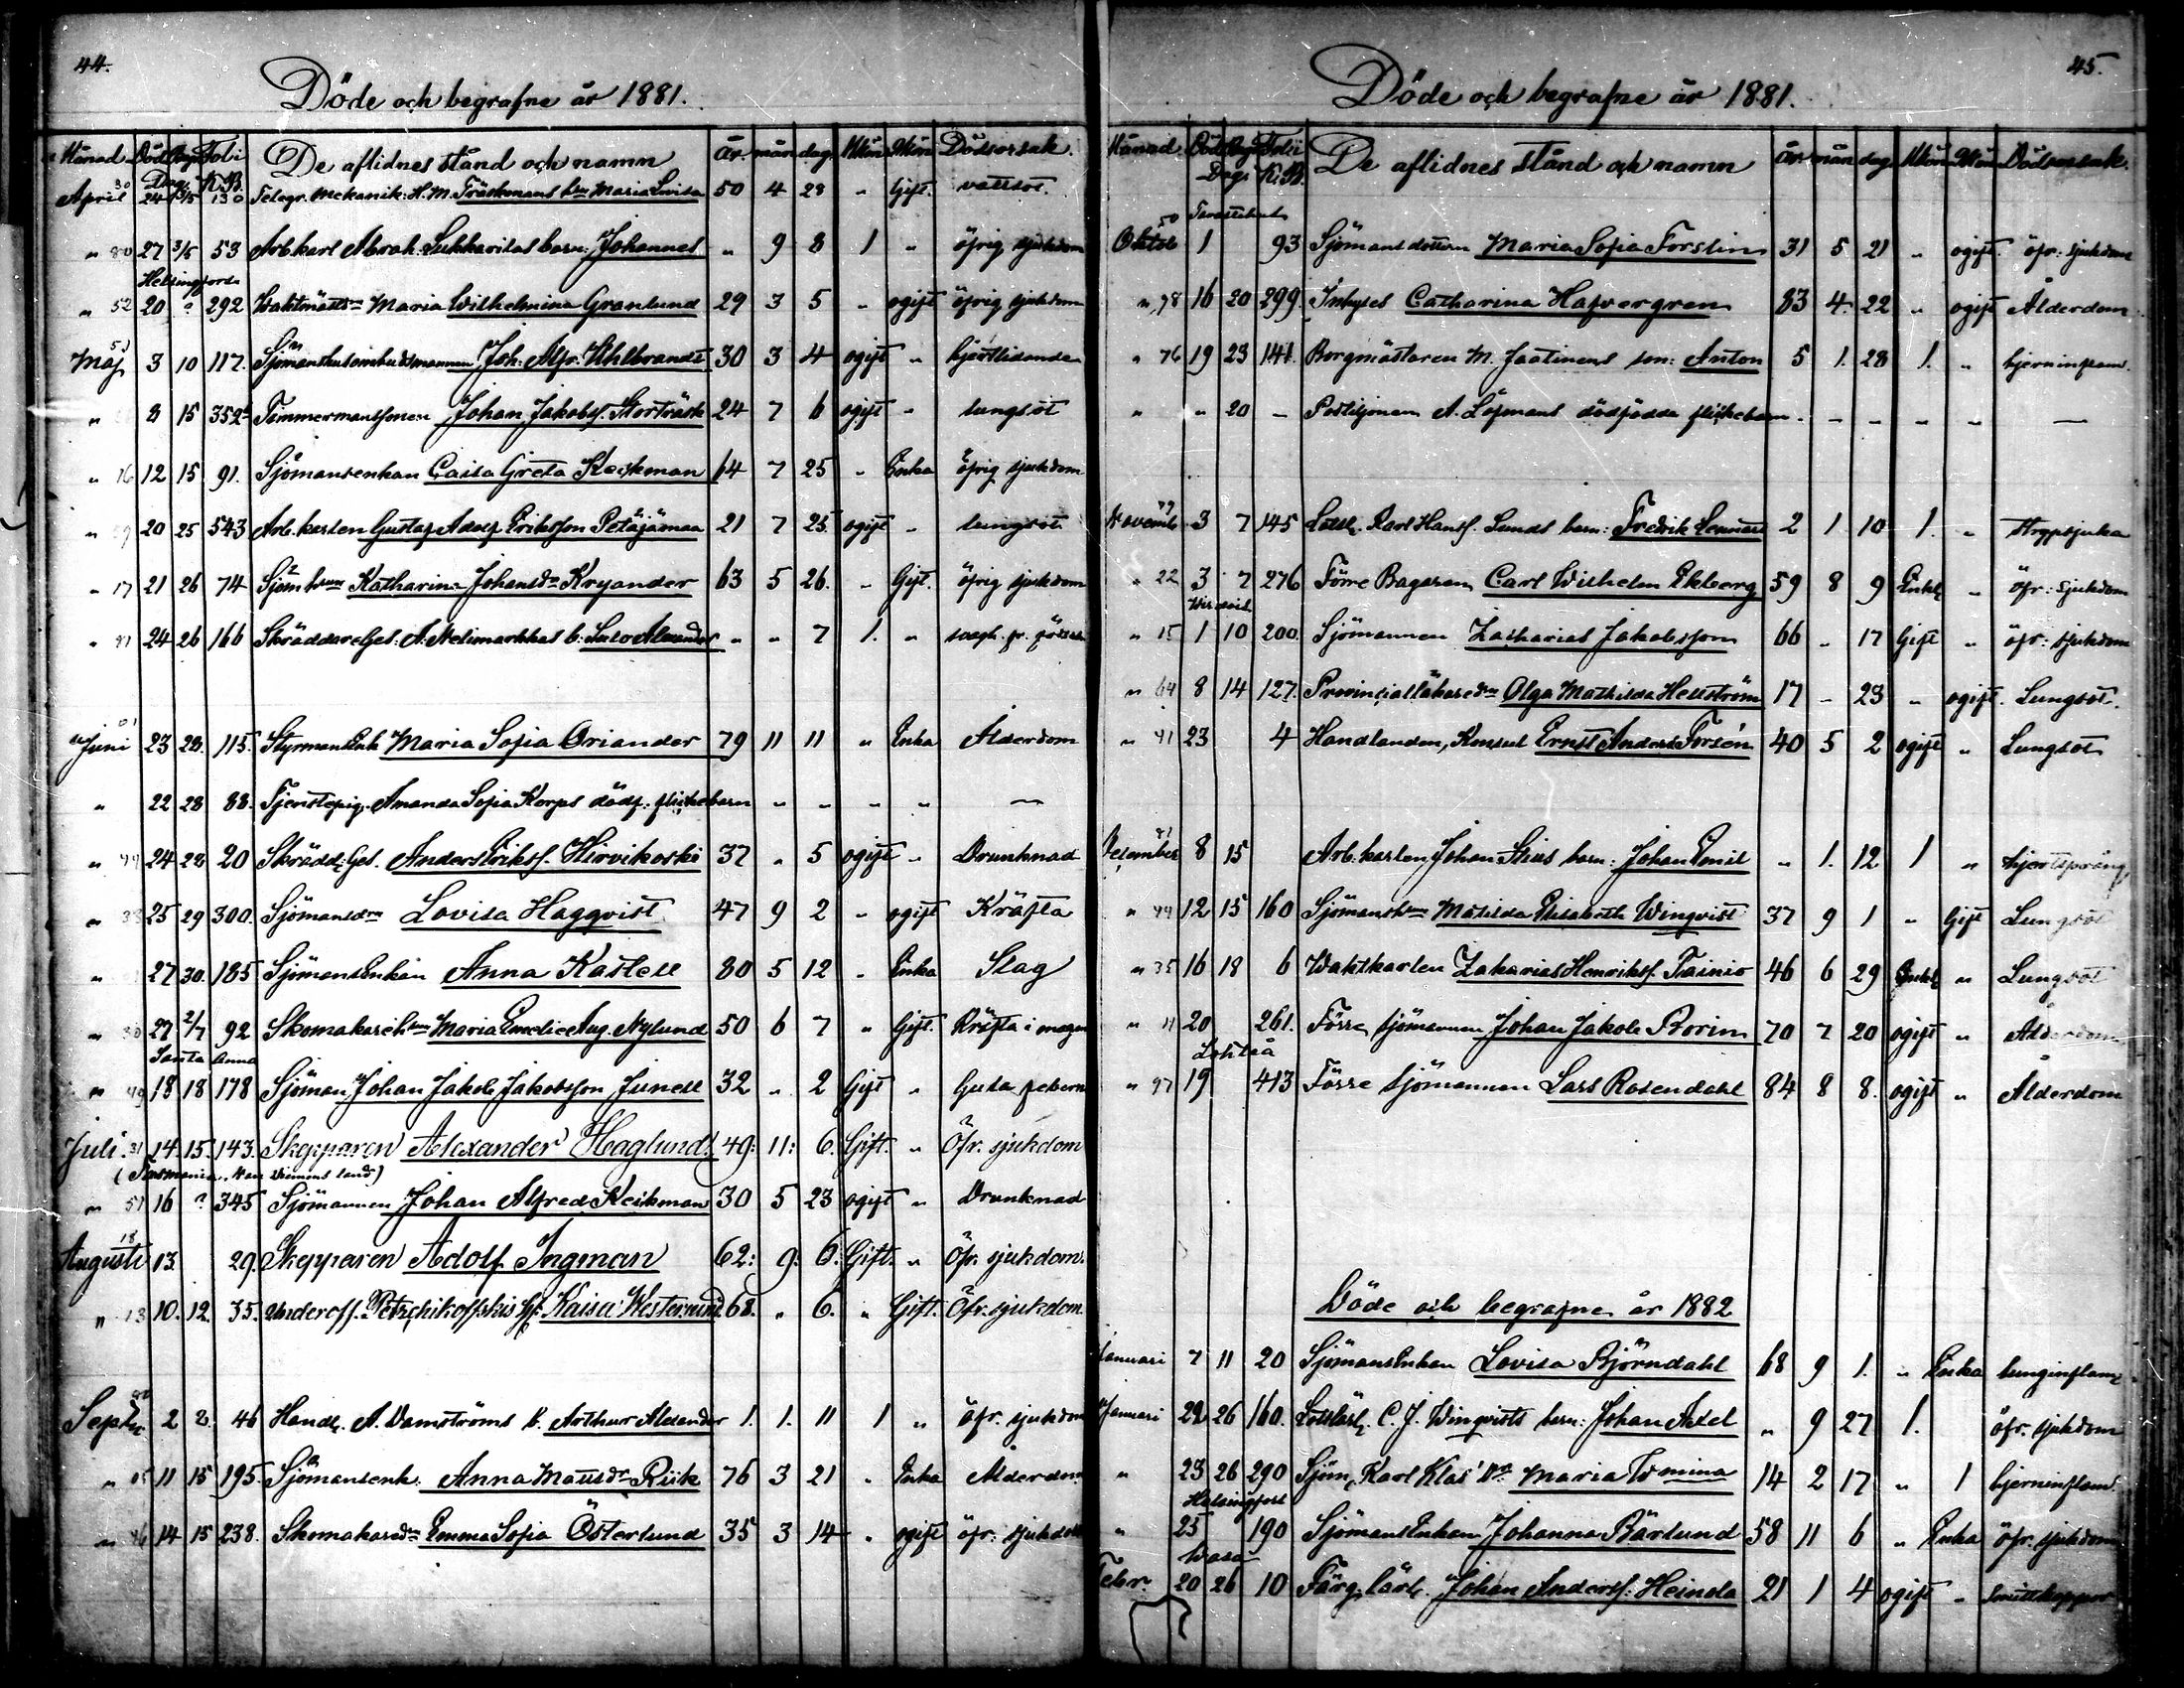 44.
Döde och begrafne år 1881.
Månad Död Begr. Folio De aflidnes stånd och namn År. mån dag. Mkön Qkön Dödsorsak.
Dag. K.B.
April 30 24 1/5 130 Telegr. Mekanik. H. M. Träskmans hru Maria Lovisa 50 4 28 " Gift. vattsot.
" 80 27 3/5 53 Arb.karl Abrah. barn: Johannes " 9 8 1 " öfrig sjukdom
Helsingfors
" 52 20 ? 292 Waktmästr Maria Wilhelmina Granlund 29 3 5 " ogift öfrig sjukdom
Maj 51 3 10 117. Joh. Alfr. Wihlbrandt 30 3 4 ogift " hjertlidande
" 8 15 352 Timmermanssonen Johan Jakobss. Storträsk 24 7 6 ogift " lungsot
" 16 12 15 91. Sjömansenkan Caisa Greta Keckman 64 7 25 " Enka öfrig sjukdom
" 59 20 25 543 Arb.karlen Gustaf Adolf Eriksson Petäjämaa 21 7 25 ogift " lungsot
" 17 21 26 74 Sjöm. hru Katharina Johansdr Kryander 63 5 26. " Gift. öfrig sjukdom
" 24 26 166 Skräddare Ges. A. b. " " 7 1. "
Juni 23 28. 115. Styrman Enk Maria Sofia Oriander 79 11 11 " Enka Ålderdom
" 22 28 88. Tjenstepig. Amanda Sofia Korps dödf. flickebarn " " " " —
" 44 24 28 20 Skrädd. Ges. Anders Erikss. Hirvikoski 37 " 5 ogift " Drunknad
" 33 25 29 300. Sjömansdr Lovisa Hagqvist 47 9 2 " ogift Kräfta
" 27 30. 185 Sjömans Enkan Anna Kastell 80 5 12 " Enka Slag
" 30 27 2/7 92 Skomakare hru Maria Emelie Aug. Nylund 50 6 7 " Gift. Kräfta i magen
Santa Anna
" 49 18 18 178 Sjöman Johan Jakob Jakobsson Junell 32 " 2 Gift " Gula febern
Juli. 31 14. 15. 143. Skepparen Alexander Haglund. 49: 11: 6. Gift. " Öfr. sjukdom
(Tasmania, Van Diemens land)
" 51 16 ? 345 Sjömannen Johan Alfred Keckman 30 5 23 ogift " Drunknad
Augusti 18 13. 29. Skepparen Adolf Ingman 62: 9: 6. Gift. " Öfr. sjukdom.
" 13 10. 12. 35. Underoff. Petschikoffskis hf: Kaisa Westerlund 68. " 6. " Gift. Öfr. sjukdom.
Septbr 80 2 2. 46 Handl. A. Damströms b. Arthur Alexander 1. 1. 11 1 " öfr. sjukdom
" 05 11 15 195. Sjömansenk. Anna Matsdr Riik 76 3 21 " Enka Ålderdom
" 46 14 15 238. Skomakaredr Emma Sofia Österlund 35 3 14 " ogift öfr: sjukdom
45.
Döde och begrafne år 1881.
Månad Död Begr Folio De aflidnes stånd och namn år mån dag Mkön Qkön Dödsorsak.
Dag. K.B.
Tavastehus
Oktob 50 1 93 Sjömans dottern Maria Sofia Forslin 31 5 21 " ogift. öfr: sjukdom
" 98 16 20 299 Inhyses Catharina Hafvergren 83 4. 22 " ogift Ålderdom
" 76 19 23 141. Borgmästaren M. Jaatinens son: Anton 5 1. 28 1. " hjerninflam.
" " 20 – Postiljonen A. Löfmans dödfödda flickebarn - - - - - —
Novemb 79 3 7 145 Lotsk. Karl Hanss. Lunds barn: Fredrik Lennart 2 1 10 1. " Strypsjuka
" 22 3 7 276 Förre Bagaren Carl Wilhelm Ekberg 59 8 9 Enkl. " öfr: sjukdom
" 15 1 10 200. Sjömannen Zacharias Jakobsson 66 " 17 Gift " öfr: sjukdom
" 64 8 14 127. Provinsialläkaredr Olga Mathilda Hellström 17 " 23 " ogift. Lungsot.
" 41 23 4 Handlanden, Konsul Ernst Anders Forsén 40 5 2 ogift " Lungsot
December 81 8 15 Arb.karlen Johan barn: Johan Emil " 1. 12 1 " hjertsprång,
" 44 12 15 160 Sjömanshru Matilda Elisabeth Winqvist 37 9 1 " Gift Lungsot
" 35 16 18 6 Waktkarlen Zakarias Henrikss. Tainio 46 6 29 Enkl. " Lungsot
" 11 20 261. Förre sjömannen Johan Jakob Borin 70 7 20 ogift " Ålderdom
Lohteå
" 97 19 413 Förre sjömannen Lars Rosendahl 84 8 8. ogift " Ålderdom
Döde och begrafne år 1882
Januari 7 11 20 Sjömans Enkan Lovisa Björndahl 68 9 1. " Enka lunginflam.
Januari 22 26 160. C. J. Winqvists barn: Johan Axel " 9 27 1. öfr. sjukdom
" 23 26 290 Sjöm. Karl Klas' dr Maria Wmina 14 2 17 " 1 hjerninflam.
Helsingfors
" 25 190 Sjömans Enkan Johanna Bärlund 58 11 6 " Enka öfr. sjukdom
Wasa
Febr. 20 26 10 Färg. lärl. Johan Anderss. Heinda 21 1 4 ogift " Smittkoppor